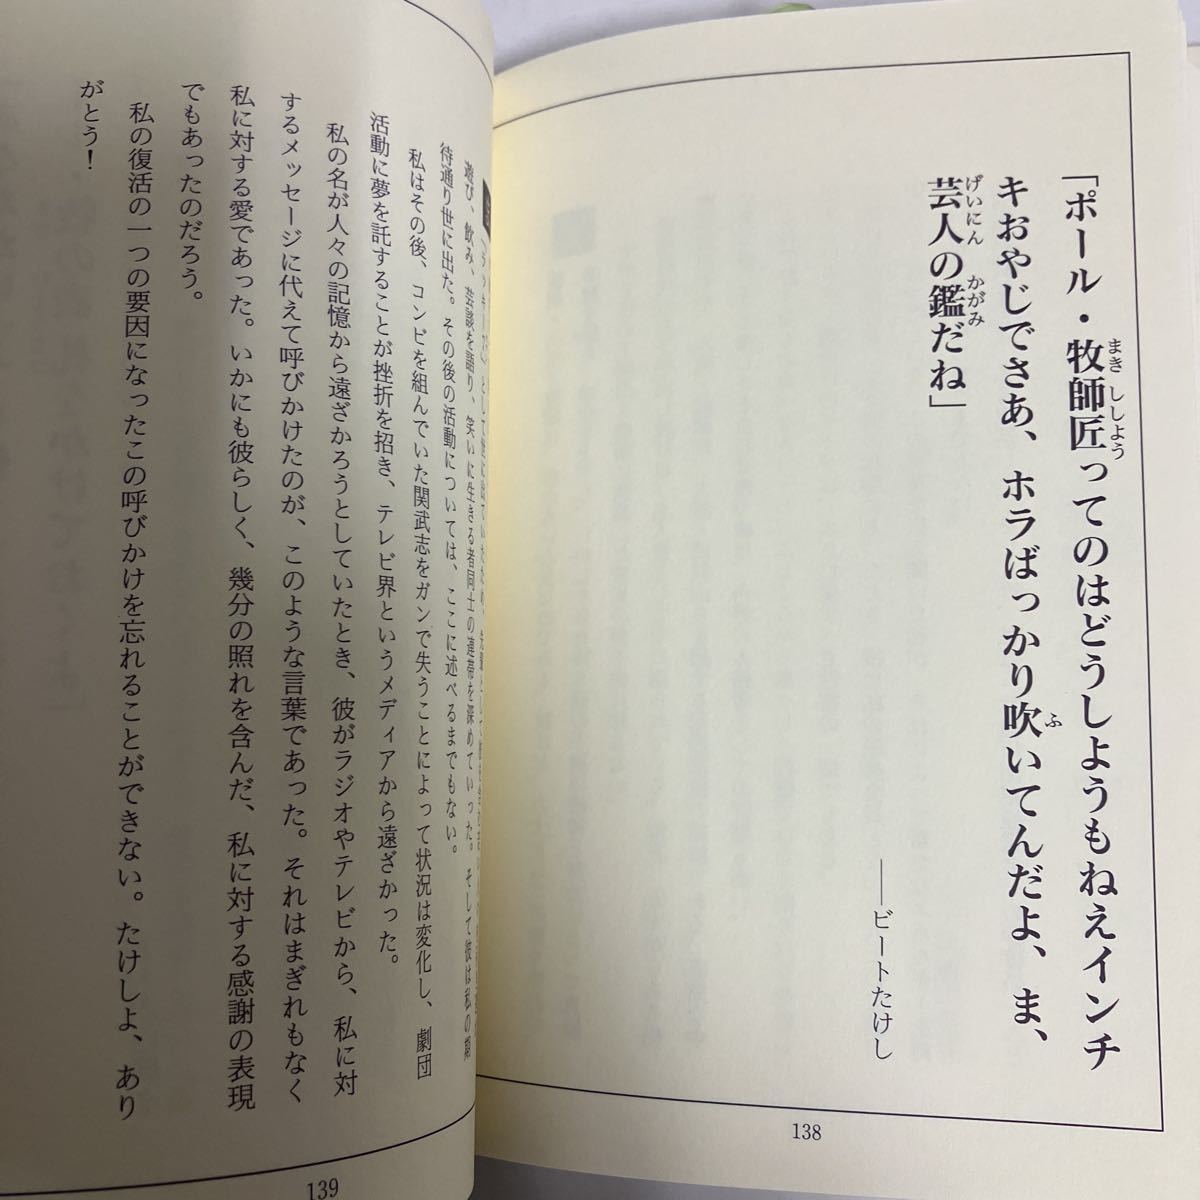 「ポール・牧師匠ってのはどうしようもねえインチ
キおやじでさあ、ホラばっかり吹いてんだよ、ま、
芸人の鑑だね」
まき ししよう
ふ
げいにん かがみ
──ビートたけし
138
として世に出ていたため、先輩として
遊び、飲み、芸談を語り、笑いに生きる者同士の連帯を深めていった。そして彼は私の期
待通り世に出た。その後の活動については、ここに述べるまでもない。
私はその後、コンビを組んでいた関武志をガンで失うことによって状況は変化し、劇団
活動に夢を託することが挫折を招き、テレビ界というメディアから遠ざかった。
私の名が人々の記憶から遠ざかろうとしていたとき、彼がラジオやテレビから、私に対
するメッセージに代えて呼びかけたのが、このような言葉であった。それはまぎれもなく
私に対する愛であった。いかにも彼らしく、幾分の照れを含んだ、私に対する感謝の表現
でもあったのだろう。
私の復活の一つの要因になったこの呼びかけを忘れることができない。たけしよ、あり
がとう！
139